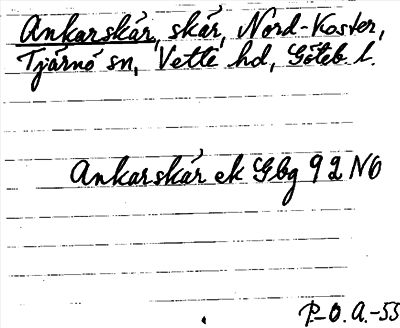 Ankarskär, skär, Nord-Koster,
Tjärnö sn, Vette hd, Göteb l.
Ankarskär ek Gbg 92 NO
P.-O.A.-55